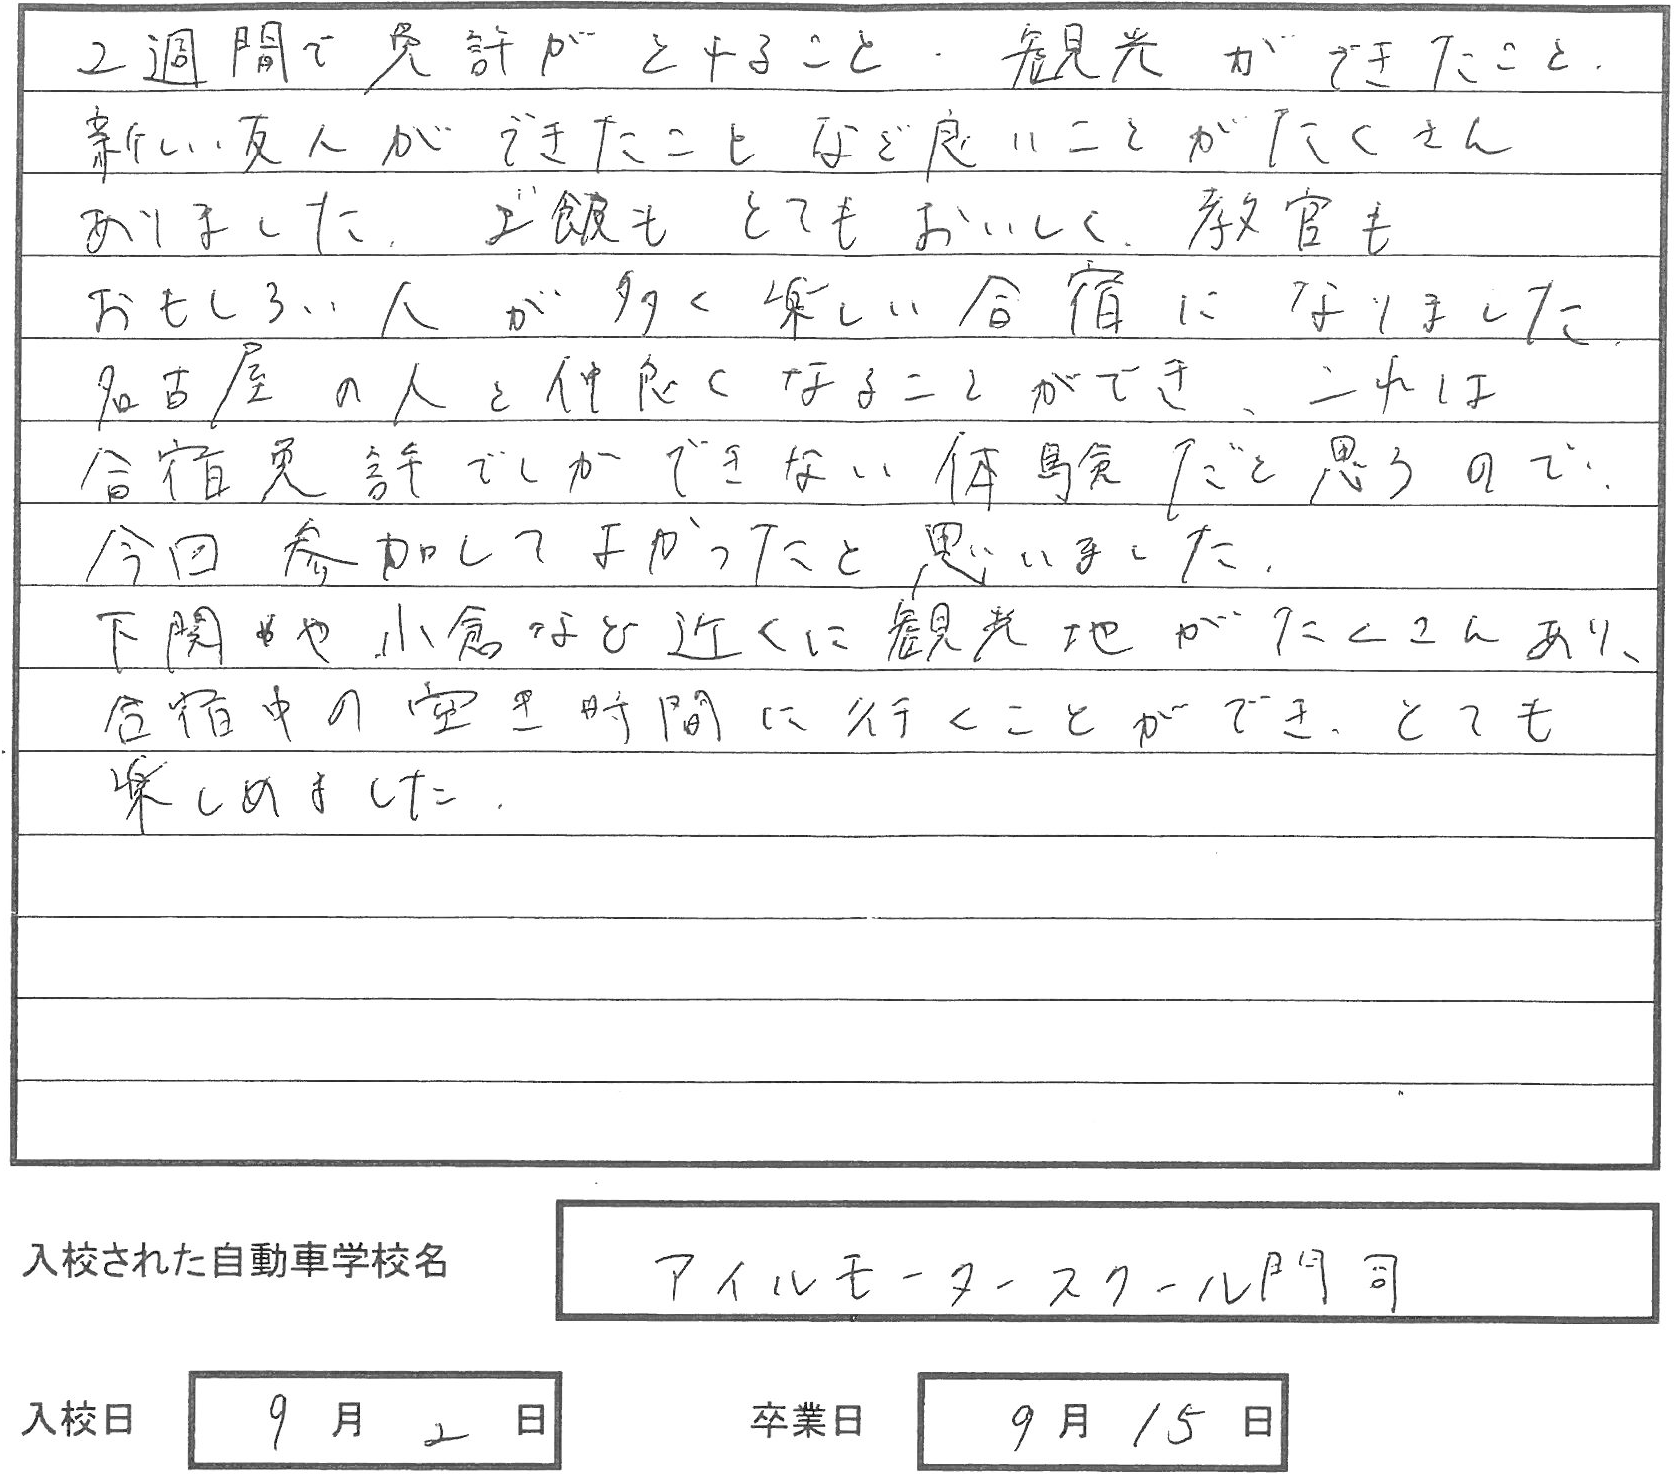 2週間で免許がとれること、観光ができたこと、
新しい友人ができたことなど良いことがたくさん
ありました。ご飯もとてもおいしく、教官も
おもしろい人が多く楽しい合宿になりました。
名古屋の人と仲良くなることができ、これは
合宿免許でしかできない体験だと思うので、
今回参加してよかったと思いました。
下関や小倉など近くに観光地がたくさんあり、
合宿中の空き時間に行くことができ、とても
楽しめました。
入校された自動車学校名 アイルモータースクール門司
入校日 9月2日 卒業日 9月15日